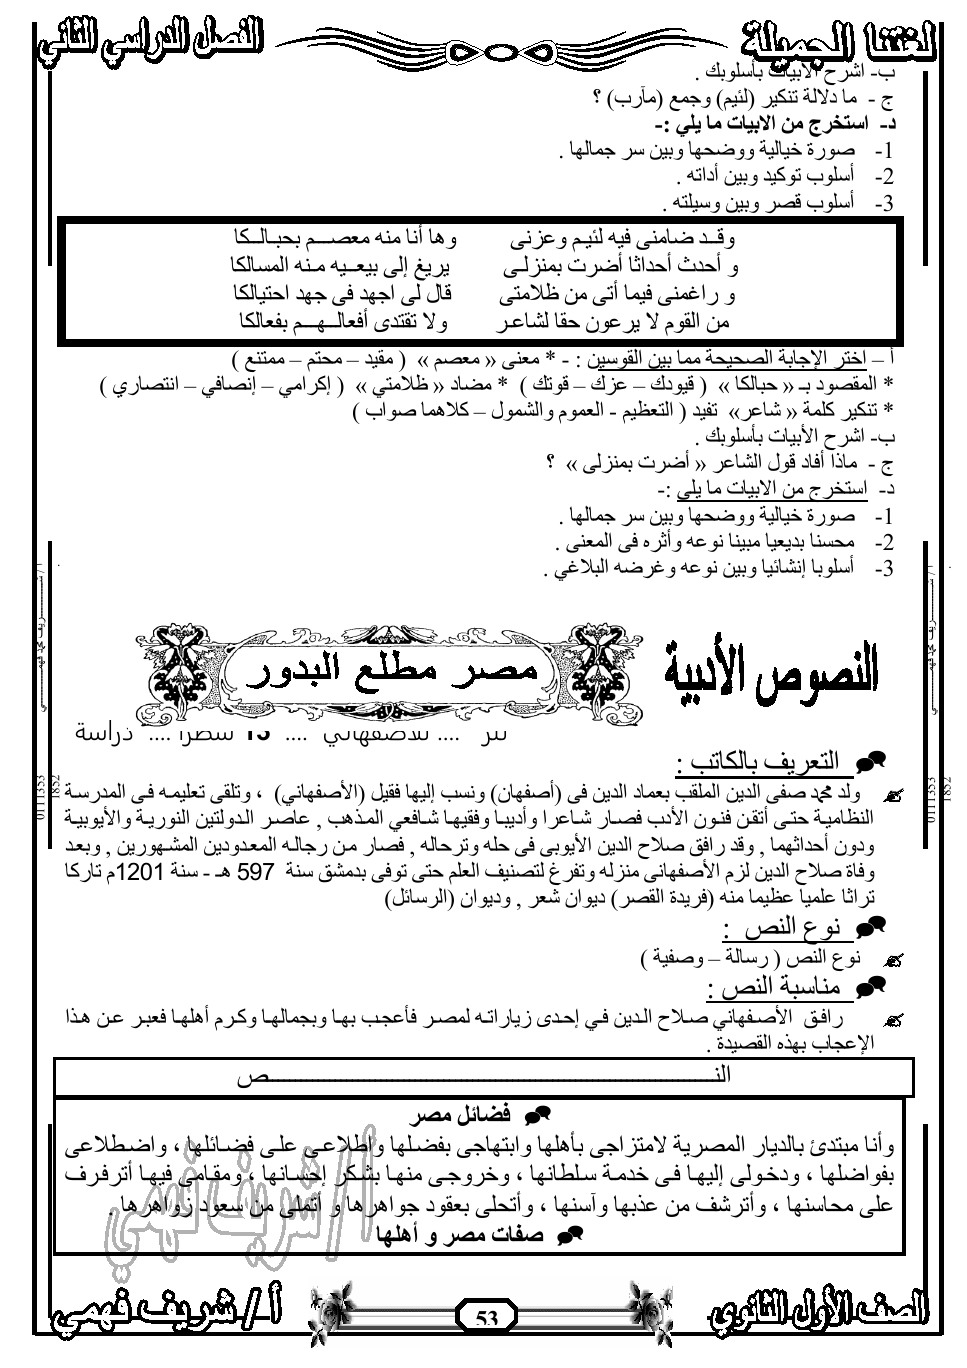 لغتنا الجميلة
الفصل الدراسي الثاني
ب- اشرح الأبيات بأسلوبك .
ج - ما دلالة تنكير (لئيم) وجمع (مآرب) ؟
د- استخرج من الابيات ما يلي :-
1- صورة خيالية ووضحها وبين سر جمالها .
2- أسلوب توكيد وبين أداته .
3- أسلوب قصر وبين وسيلته .
وقــد ضامنى فيه لئيـم وعزنى وها أنا منه معصـــم بحبـالــكا
و أحدث أحداثا أضرت بمنزلـى يريغ إلى بيعــيه مـنه المسالكا
و راغمنى فيما أتى من ظلامتى قال لى اجهد فى جهد احتيالكا
من القوم لا يرعون حقا لشاعـر ولا تقتدى أفعالــهــم بفعالكا
أ – اختر الإجابة الصحيحة مما بين القوسين : - * معنى « معصم » ( مقيد – محتم – ممتنع )
* المقصود بـ « حبالكا » ( قيودك – عزك – قوتك ) * مضاد « ظلامتي » ( إكرامي – إنصافي – انتصاري )
* تنكير كلمة « شاعر» تفيد ( التعظيم - العموم والشمول – كلاهما صواب )
ب- اشرح الأبيات بأسلوبك .
ج - ماذا أفاد قول الشاعر « أضرت بمنزلى » ؟
د- استخرج من الابيات ما يلي :-
1- صورة خيالية ووضحها وبين سر جمالها .
2- محسنا بديعيا مبينا نوعه وأثره فى المعنى .
3- أسلوبا إنشائيا وبين نوعه وغرضه البلاغي .
النصوص الأدبية
مصر مطلع البدور
نثر .... للأصفهاني .... 15 سطرا .... دراسة
التعريف بالكاتب :
ولد محمد صفى الدين الملقب بعماد الدين فى (أصفهان) ونسب إليها فقيل (الأصفهاني) ، وتلقى تعليمه فى المدرسة
النظامية حتى أتقن فنون الأدب فصار شاعرا وأديبا وفقيها شافعي المذهب , عاصر الدولتين النورية والأيوبية
ودون أحداثهما , وقد رافق صلاح الدين الأيوبى فى حله وترحاله , فصار من رجاله المعدودين المشهورين , وبعد
وفاة صلاح الدين لزم الأصفهانى منزله وتفرغ لتصنيف العلم حتى توفى بدمشق سنة 597 هـ - سنة 1201م تاركا
تراثا علميا عظيما منه (فريدة القصر) ديوان شعر , وديوان (الرسائل)
نوع النص :
نوع النص ( رسالة – وصفية )
مناسبة النص :
رافق الأصفهاني صلاح الدين في إحدى زياراته لمصر فأعجب بها وبجمالها وكرم أهلها فعبر عن هذا
الإعجاب بهذه القصيدة .
النــــــــــــــــــــــــــــــــص
فضائل مصر
وأنا مبتدئ بالديار المصرية لامتزاجى بأهلها وابتهاجى بفضلها واطلاعى على فضائلها ، واضطلاعى
بفواضلها ، ودخولى إليها فى خدمة سلطانها ، وخروجى منها بشكر إحسانها ، ومقامي فيها أترفرف
على محاسنها ، وأترشف من عذبها وآسنها ، وأتحلى بعقود جواهرها و أتملى من سعود زواهرها .
صفات مصر و أهلها
أ / شريف فهمي
الصف الأول الثانوي
53
أ / شريف فهمي
أ / شــــــريف محمد فهمــــــي
0111353
1852
أ / شــــــريف محمد فهمــــــي
0111353
1852